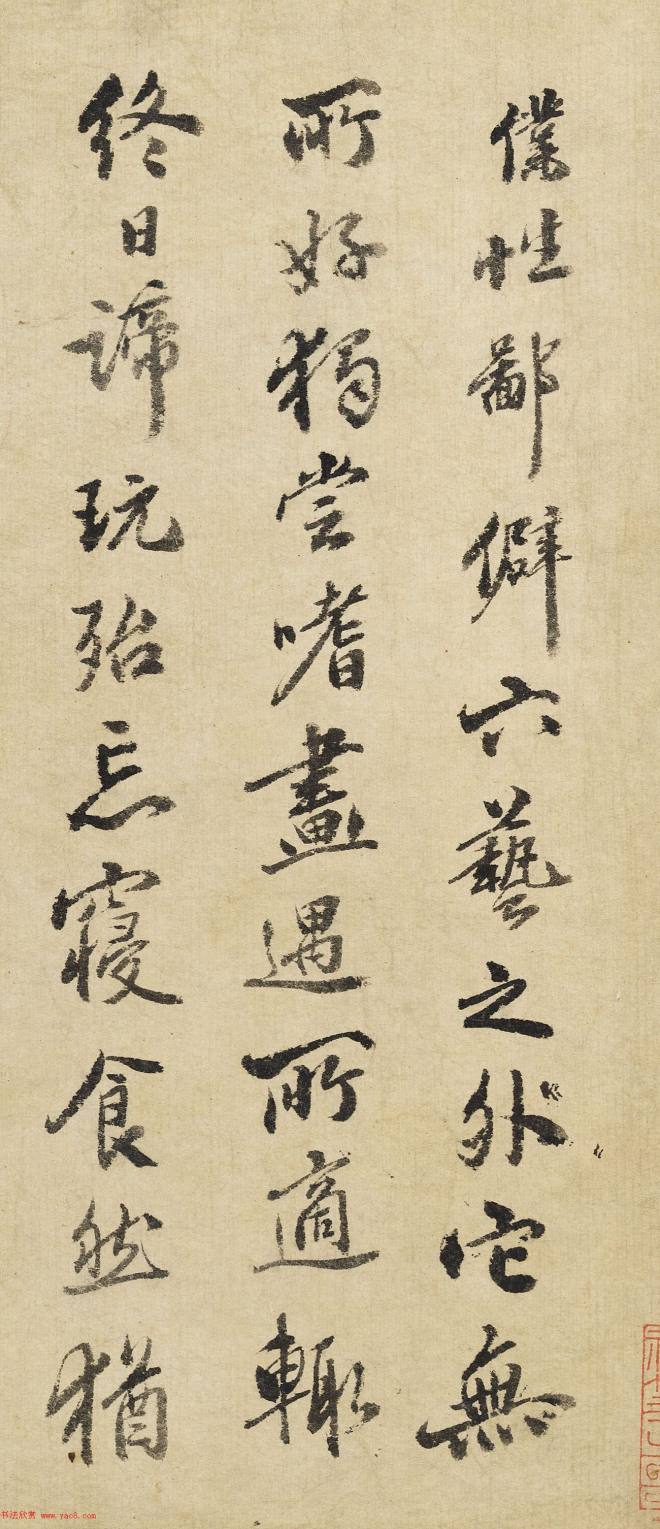 僕性鄙僻六藝之外它無
所好獨嘗嗜畫遇所適輒
終日諦玩殆忘寢食然猶
书法欣赏 www.yac8.com